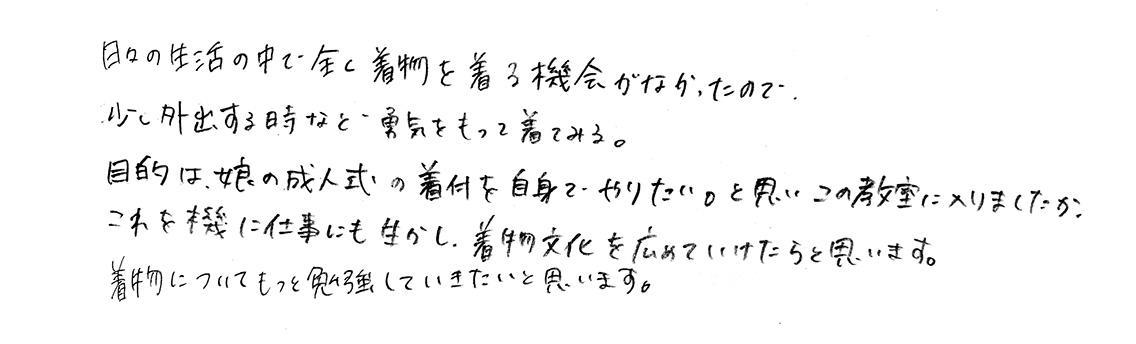 日々の生活の中で全く着物を着る機会がなかったので、
少し外出する時など勇気をもって着てみる。
目的は、娘の成人式の着付を自身でやりたい。と思いこの教室に入りましたが、
これを機に仕事にも生かし、着物文化を広めていけたらと思います。
着物についてもっと勉強していきたいと思います。